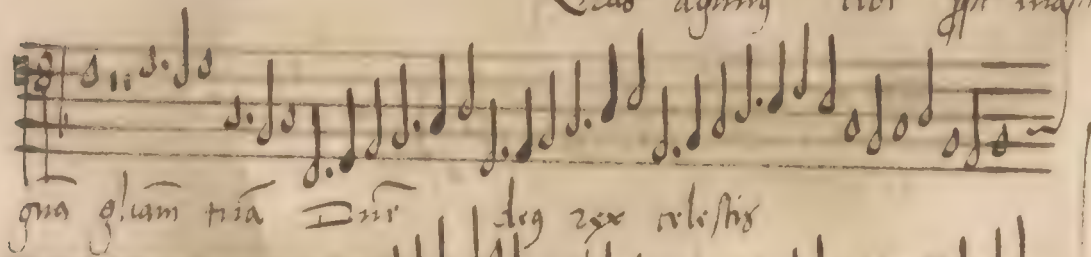 Gras agimus tibi ppt mag
gnā gl'iam tuā Dn̄e deꝯ rex celestis